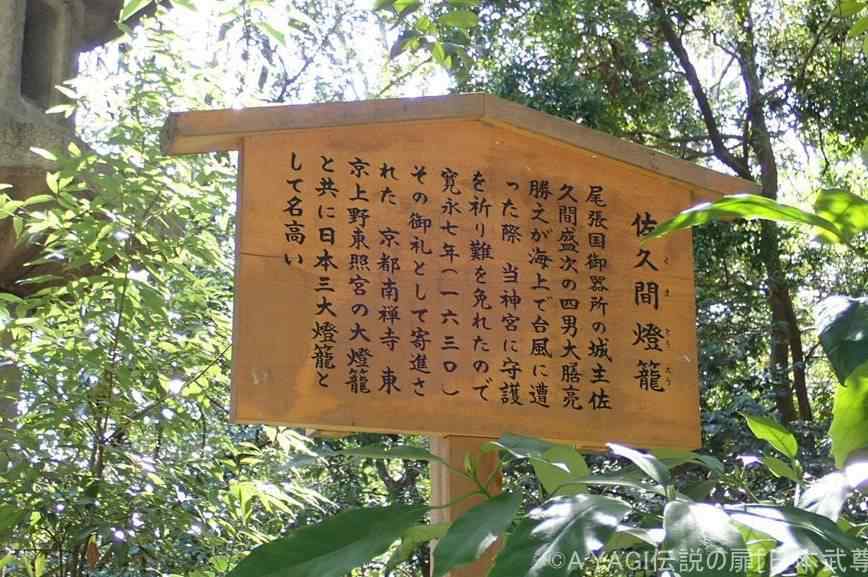 佐久間燈籠
尾張国御器所の城主佐
久間盛次の四男大膳亮
勝之が海上で台風に遭
った際 当神宮に守護
を祈り難を免れたので
寛永七年(一六三〇)
その御礼として寄進さ
れた 京都南禅寺 東
京上野東照宮の大燈籠
と共に日本三大燈籠と
して名高い
©A-YAGI伝説の扉『日本武尊